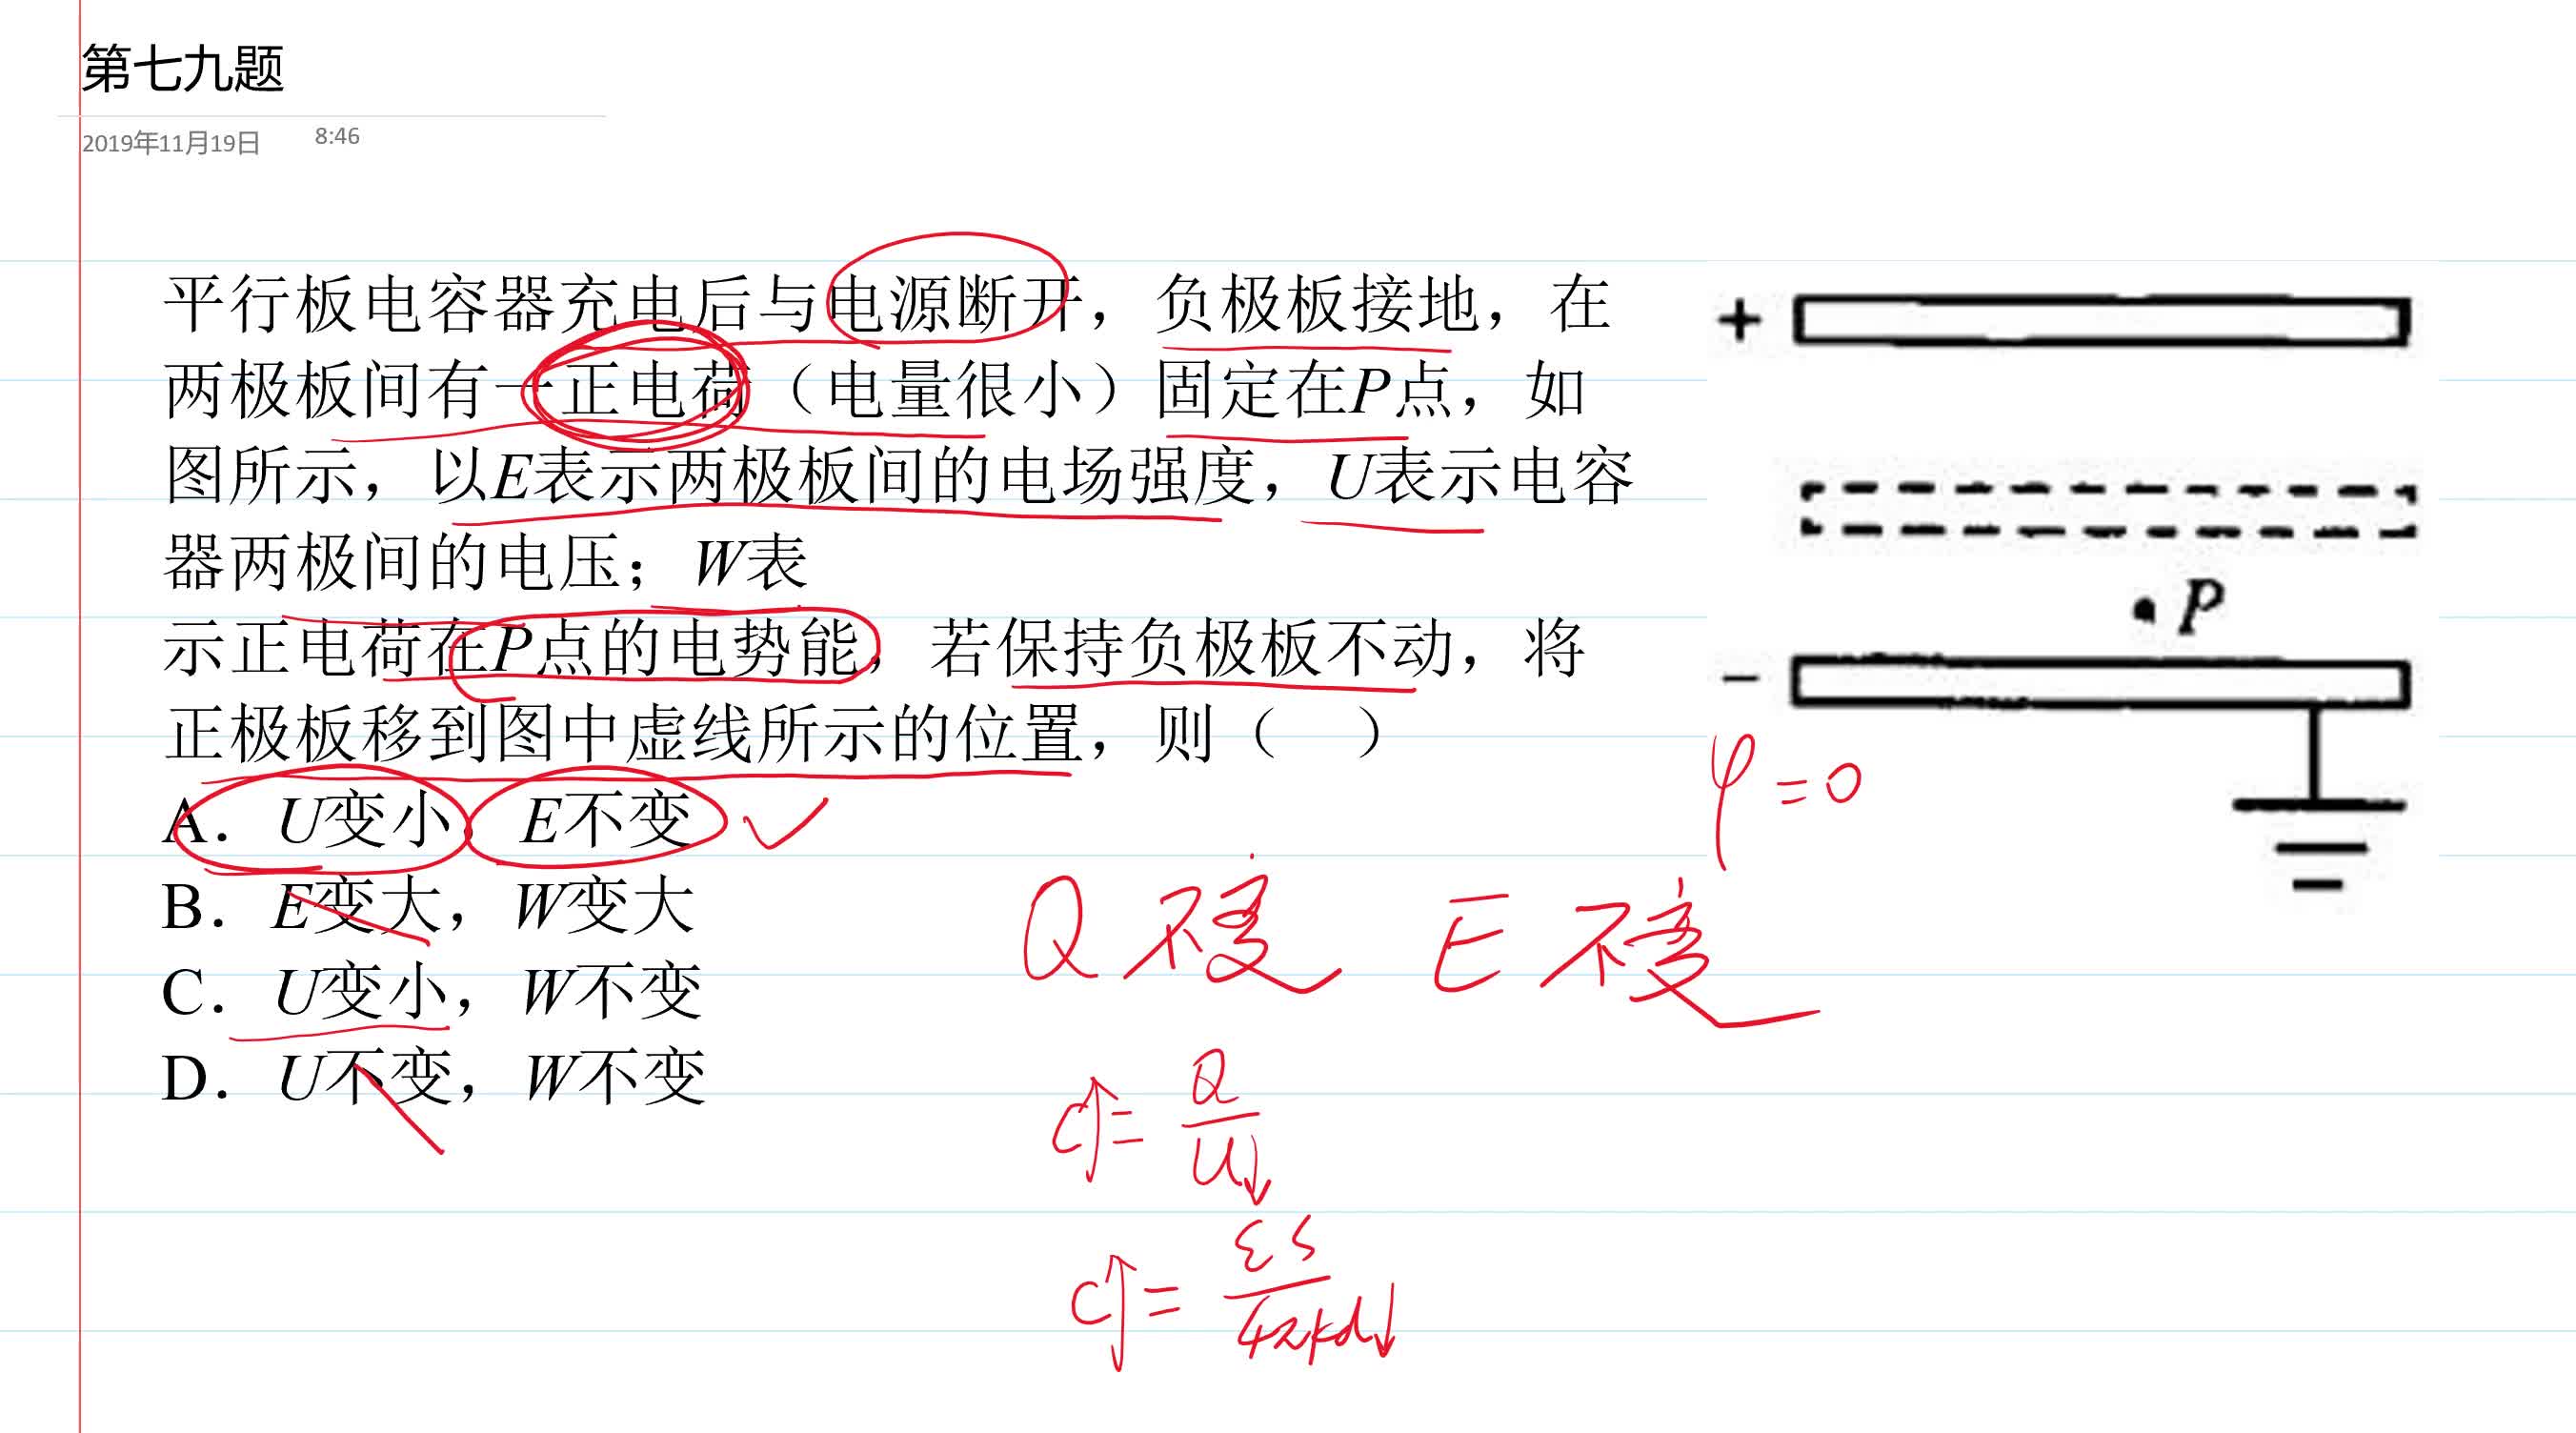 第七九题
2019年11月19日 8:46
平行板电容器充电后与电源断开，负极板接地，在
两极板间有一正电荷（电量很小）固定在P点，如
图所示，以E表示两极板间的电场强度，U表示电容
器两极间的电压；W表
示正电荷在P点的电势能，若保持负极板不动，将
正极板移到图中虚线所示的位置，则（ ）
A．U变小，E不变
B．E变大，W变大
C．U变小，W不变
D．U不变，W不变
+
P
−
φ=0
Q不变 E不变
C↑=Q/U↓
C↑=εS/4πkd↓